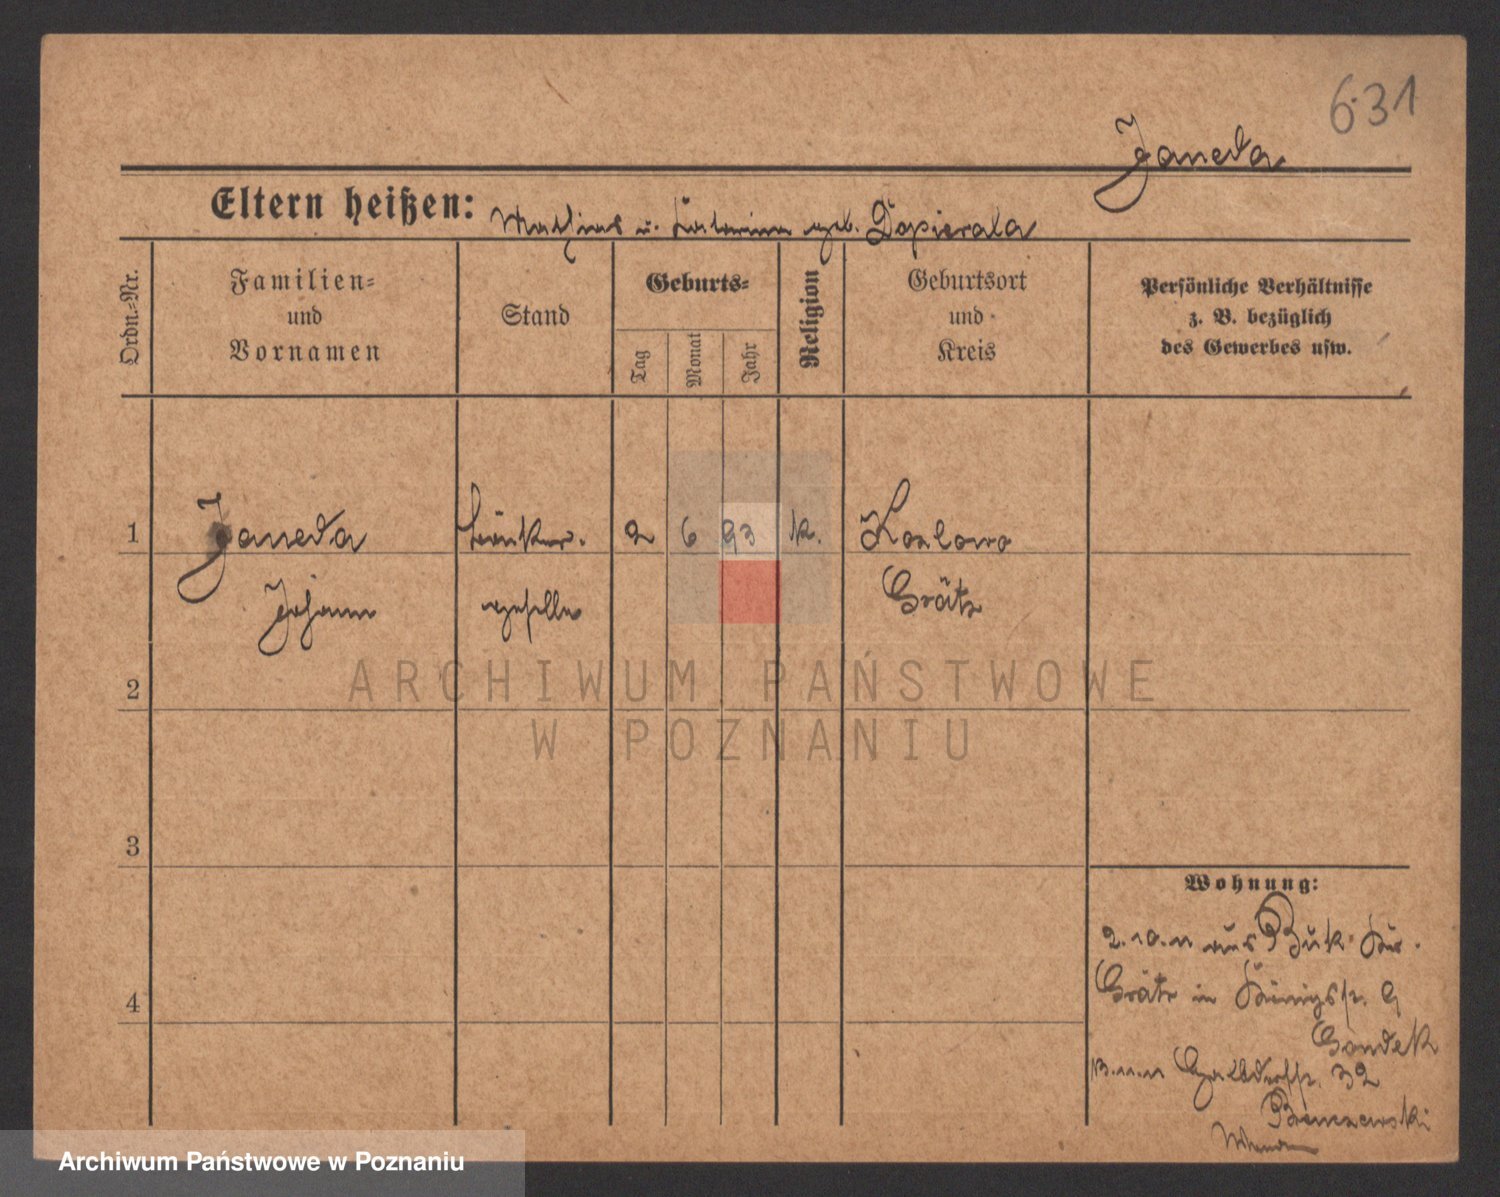 631
Janeda
Eltern heißen: Mathias u. Katarina geb. Dopierala
Ordn.-Nr.
Familien-
und
Vornamen
Stand
Geburts-
Tag
Monat
Jahr
Religion
Geburtsort
und
Kreis
Persönliche Verhältnisse
z. B. bezüglich
des Gewerbes usw.
1 Janeda 2 6 93 k. Kozlowo
Johann geselle Grätz
ARCHIWUM PAŃSTWOWE
2
W POZNANIU
3
Wohnung:
2.10.11 aus Buk Kr.
4
Grätz in Königstr. 9
Gondek
13.11.11 32
Archiwum Państwowe w Poznaniu